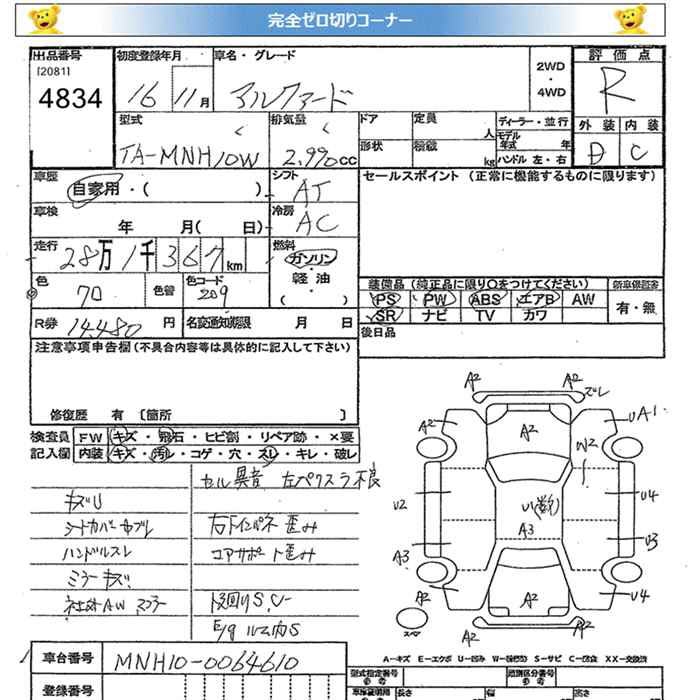 完全ゼロ切りコーナー
出品番号
[2081]
4834
初度登録年月
16 11月
車名・グレード
アルファード
2WD
・
4WD
評価点
R
外装 内装
D C
型式
TA-MNH10W
排気量
2.990cc
ドア
形状
定員
人
積載
kg
ディーラー・並行
モデル年式 年
ハンドル 左・右
車歴
自家用・( )
シフト
AT
車検
年 月( 日)
冷房
AC
走行
28万1千367km
燃料
ガソリン
・
軽油
( )
色
70
色替
色コード
209
R券 14,480円
名変通知期限 月 日
セールスポイント (正常に機能するものに限ります)
装備品 (純正品に限り○をつけてください)
PS PW ABS エアB AW
SR ナビ TV カワ
新車保証書
有・無
後日品
注意事項申告欄(不具合内容等は具体的に記入して下さい)
修復歴 有 〔箇所 〕
検査員記入欄
FW キズ・飛石・ヒビ割・リペア跡・×要
内装 キズ・汚レ・コゲ・穴・スレ・キレ・破レ
セル異音 左パワスラ不良
キズU
シートカバーヤブレ
右下インパネ歪み
ハンドルスレ
コアサポート歪み
ミラーキズ
社外AW マフラー
下廻りS,U
E/gルーム内S
A2 A2
ズレ
A2
A2
UA1
W2
U2
U1(数)
U4
A3
A3
U3
A2
A2
U4
スペア
A2 A2
A-キズ E-エクボ U-凹み W-補修跡 S-サビ C-腐食 XX-交換済
車台番号 MNH10-0064610
登録番号
型式指定番号
参考
類別区分番号
参考
長さ
幅
高さ